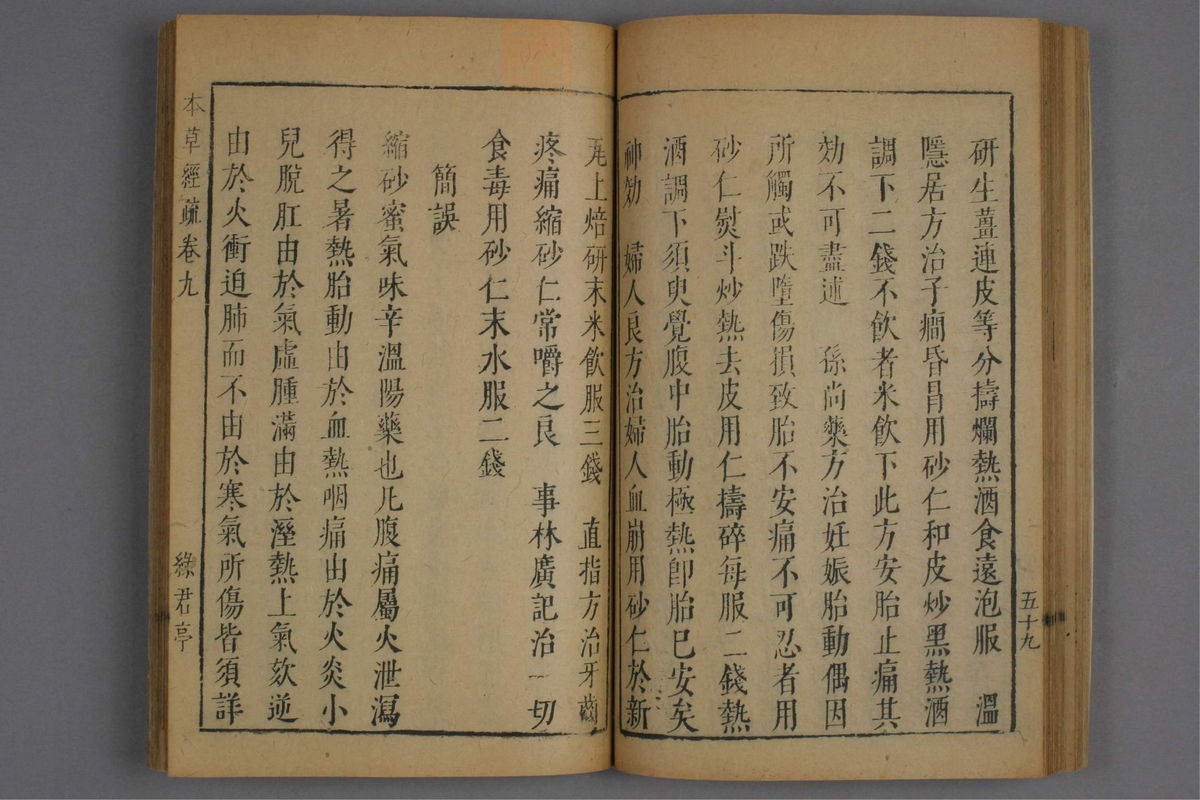 五十九
研生薑連皮等分擣爛熱酒食遠泡服　溫
隱居方治子癎昏冒用砂仁和皮炒黑熱酒
調下二錢不飲者米飲下此方安胎止痛其
効不可盡述　孫尚藥方治妊娠胎動偶因
所觸或跌墮傷損致胎不安痛不可忍者用
砂仁熨斗炒熱去皮用仁擣碎每服二錢熱
酒調下須臾覺腹中胎動極熱卽胎巳安矣
神効　婦人良方治婦人血崩用砂仁於新
瓦上焙研末米飲服三錢　直指方治牙齒
疼痛縮砂仁常嚼之良　事林廣記治一切
食毒用砂仁末水服二錢
簡誤
縮砂蜜氣味辛溫陽藥也凡腹痛屬火泄瀉
得之暑熱胎動由於血熱咽痛由於火炎小
兒脫肛由於氣虛腫滿由於溼熱上氣欬逆
由於火衝迫肺而不由於寒氣所傷皆須詳
本草經疏卷九
綠君亭